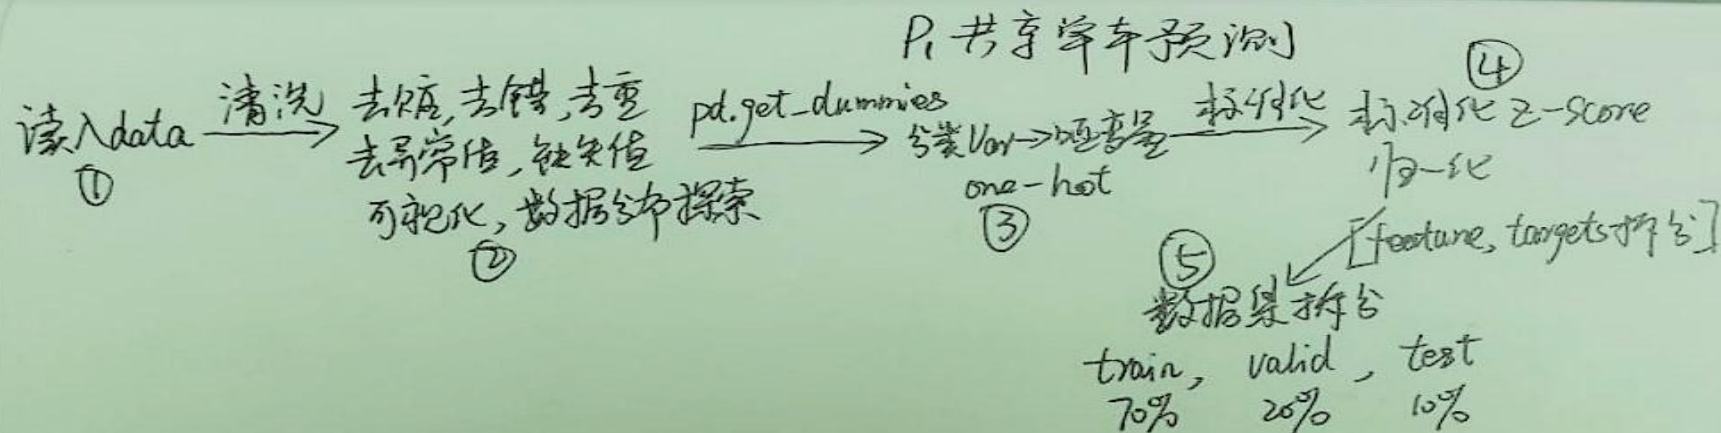 P1 共享单车预测
读入data
清洗
①
去
去错,去重
去异常值,缺失值
可视化,数据分布探索
②
pd.get_dummies
分类Var→哑变量
one-hot
③
标准化
④
标准化 z-score
归一化
[feature, targets拆分]
⑤
数据集拆分
train, valid, test
70% 20% 10%